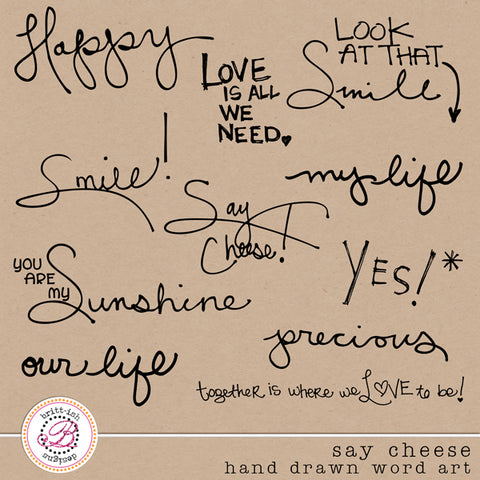 Happy
LOVE
IS ALL
WE
NEED.
LOOK
AT THAT
Smile
Smile!
my life
Say
Cheese!
YOU
ARE
MY
Sunshine
YES!*
precious
our life
together is where we LOVE to be!
britt-ish
B
designs
say cheese
hand drawn word art